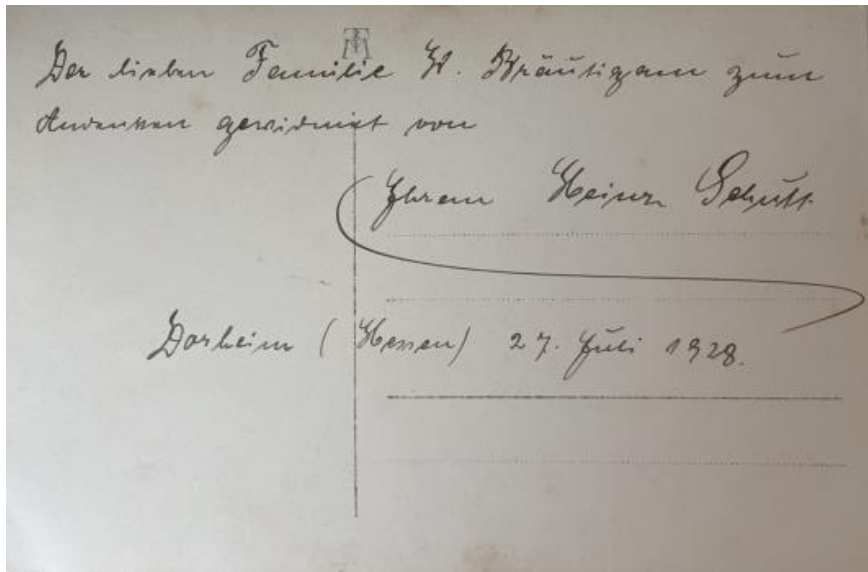 Der lieben Familie W. Bräutigam zum
Andenken gewidmet von
Ihrem Heinz Schutt
Dorheim (Hessen) 27. Juli 1928.